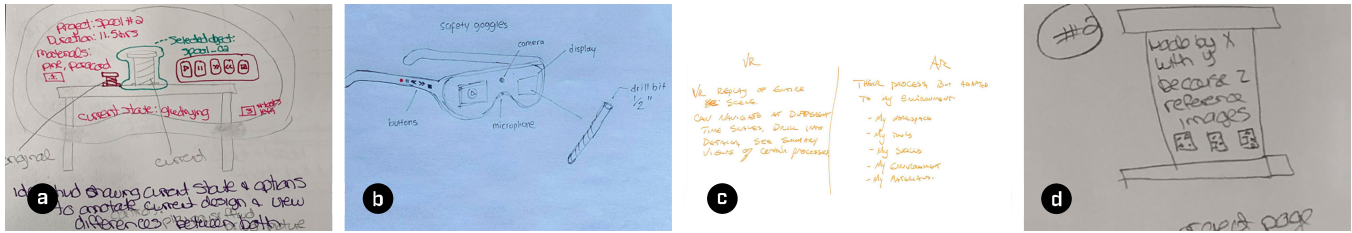 project: Spool #2
Duration: 11.5hrs
Materials:
pine, paracord
Selected object:
Spool_02
current state: gluedrying
original
current
hud showing current state & options
to annotate current design & view
differences between both
a
safety goggles
camera
display
drill bit
1/2"
buttons
microphone
b
VR
VR REPLAY OF ENTIRE
SCENE
CAN NAVIGATE AT DIFFERENT
TIME SCALES, DRILL INTO
DETAILS, SEE SUMMARY
VIEWS OF CERTAIN PROCESSES
AR
THEIR PROCESS, BUT ADAPTED
TO MY ENVIRONMENT
- MY WORKSPACE
- MY TOOLS
- MY SKILLS
- MY ENVIRONMENT
- MY MATERIALS.
c
#2
Made by X
with Y
because Z
reference
images
project page
d